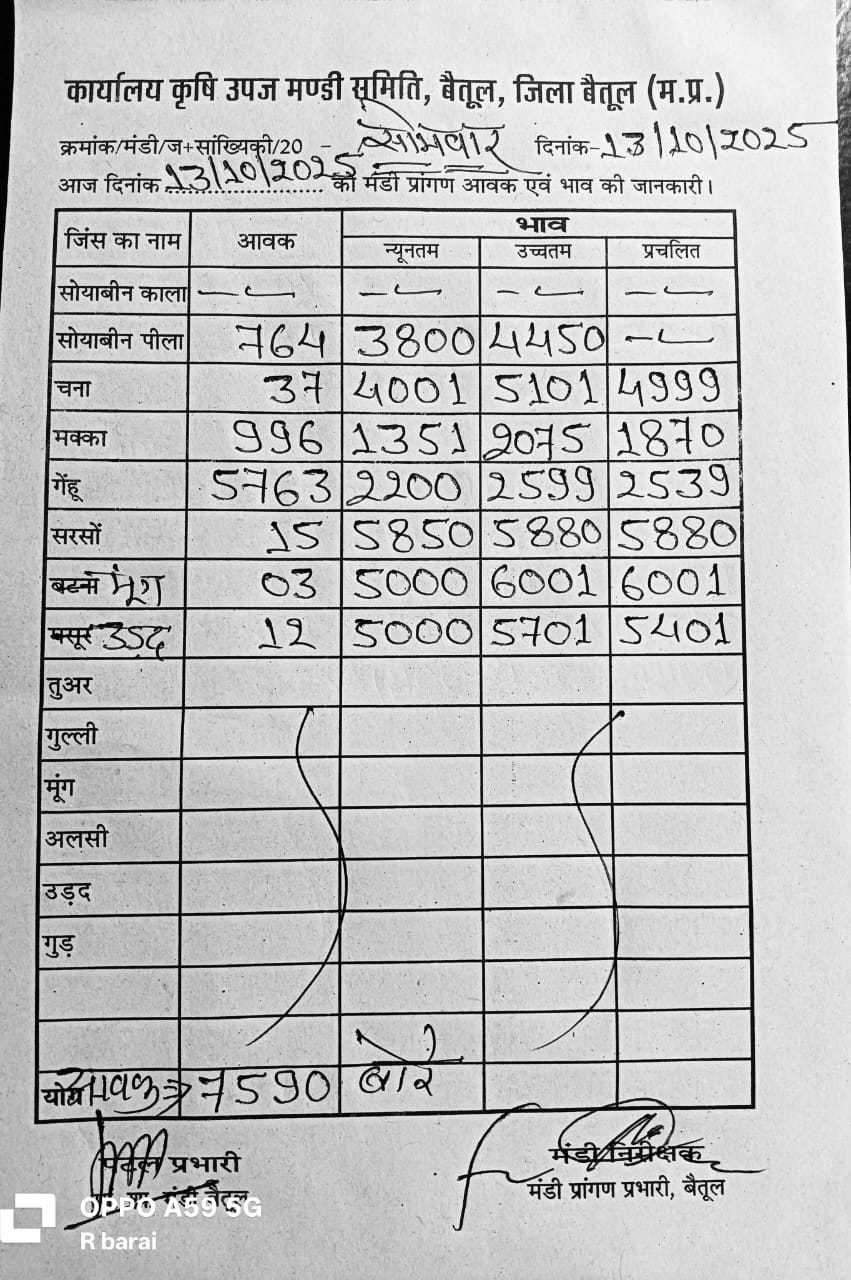 कार्यालय कृषि उपज मण्डी समिति, बैतूल, जिला बैतूल (म.प्र.)
क्रमांक/मंडी/ज+सांख्यिकी/20 - सोमवार दिनांक-13/10/2025
आज दिनांक 13/10/2025 को मंडी प्रांगण आवक एवं भाव की जानकारी।
जिंस का नाम आवक भाव
न्यूनतम उच्चतम प्रचलित
सोयाबीन काला - - - -
सोयाबीन पीला 764 3800 4450 -
चना 37 4001 5101 4999
मक्का 996 1351 2075 1870
गेंहू 5763 2200 2599 2539
सरसों 15 5850 5880 5880
बटना मूंग 03 5000 6001 6001
मसूर उड़द 12 5000 5701 5401
तुअर
गुल्ली
मूंग
अलसी
उड़द
गुड़
योग आवक⇒ 7590 बोरे
प्रभारी मंडी निरीक्षक
मंडी बैतूल मंडी प्रांगण प्रभारी, बैतूल
OPPO A59 5G
R barai